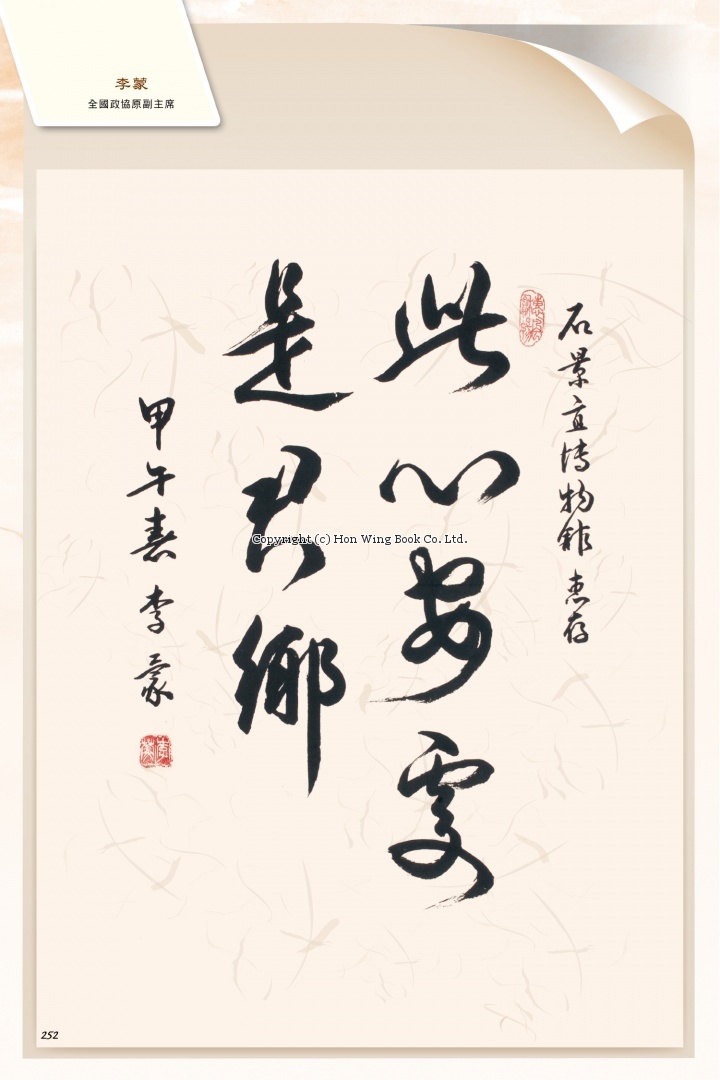 李蒙
全國政協原副主席
石景宜博物館 惠存
此心安處
是吾鄉
甲午春 李蒙
Copyright (c) Hon Wing Book Co. Ltd.
252